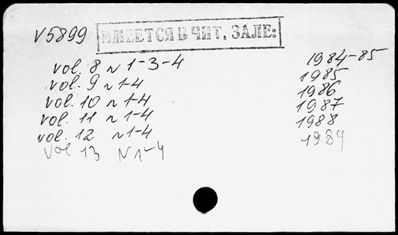 V5899 ИМЕЕТСЯ В ЧИТ. ЗАЛЕ:
vol. 8 N 1-3-4 1984-85
vol. 9 N 1-4 1985
vol. 10 N 1-4 1986
vol. 11 N 1-4 1987
vol. 12 N 1-4 1988
vol 13 N 1-4 1989